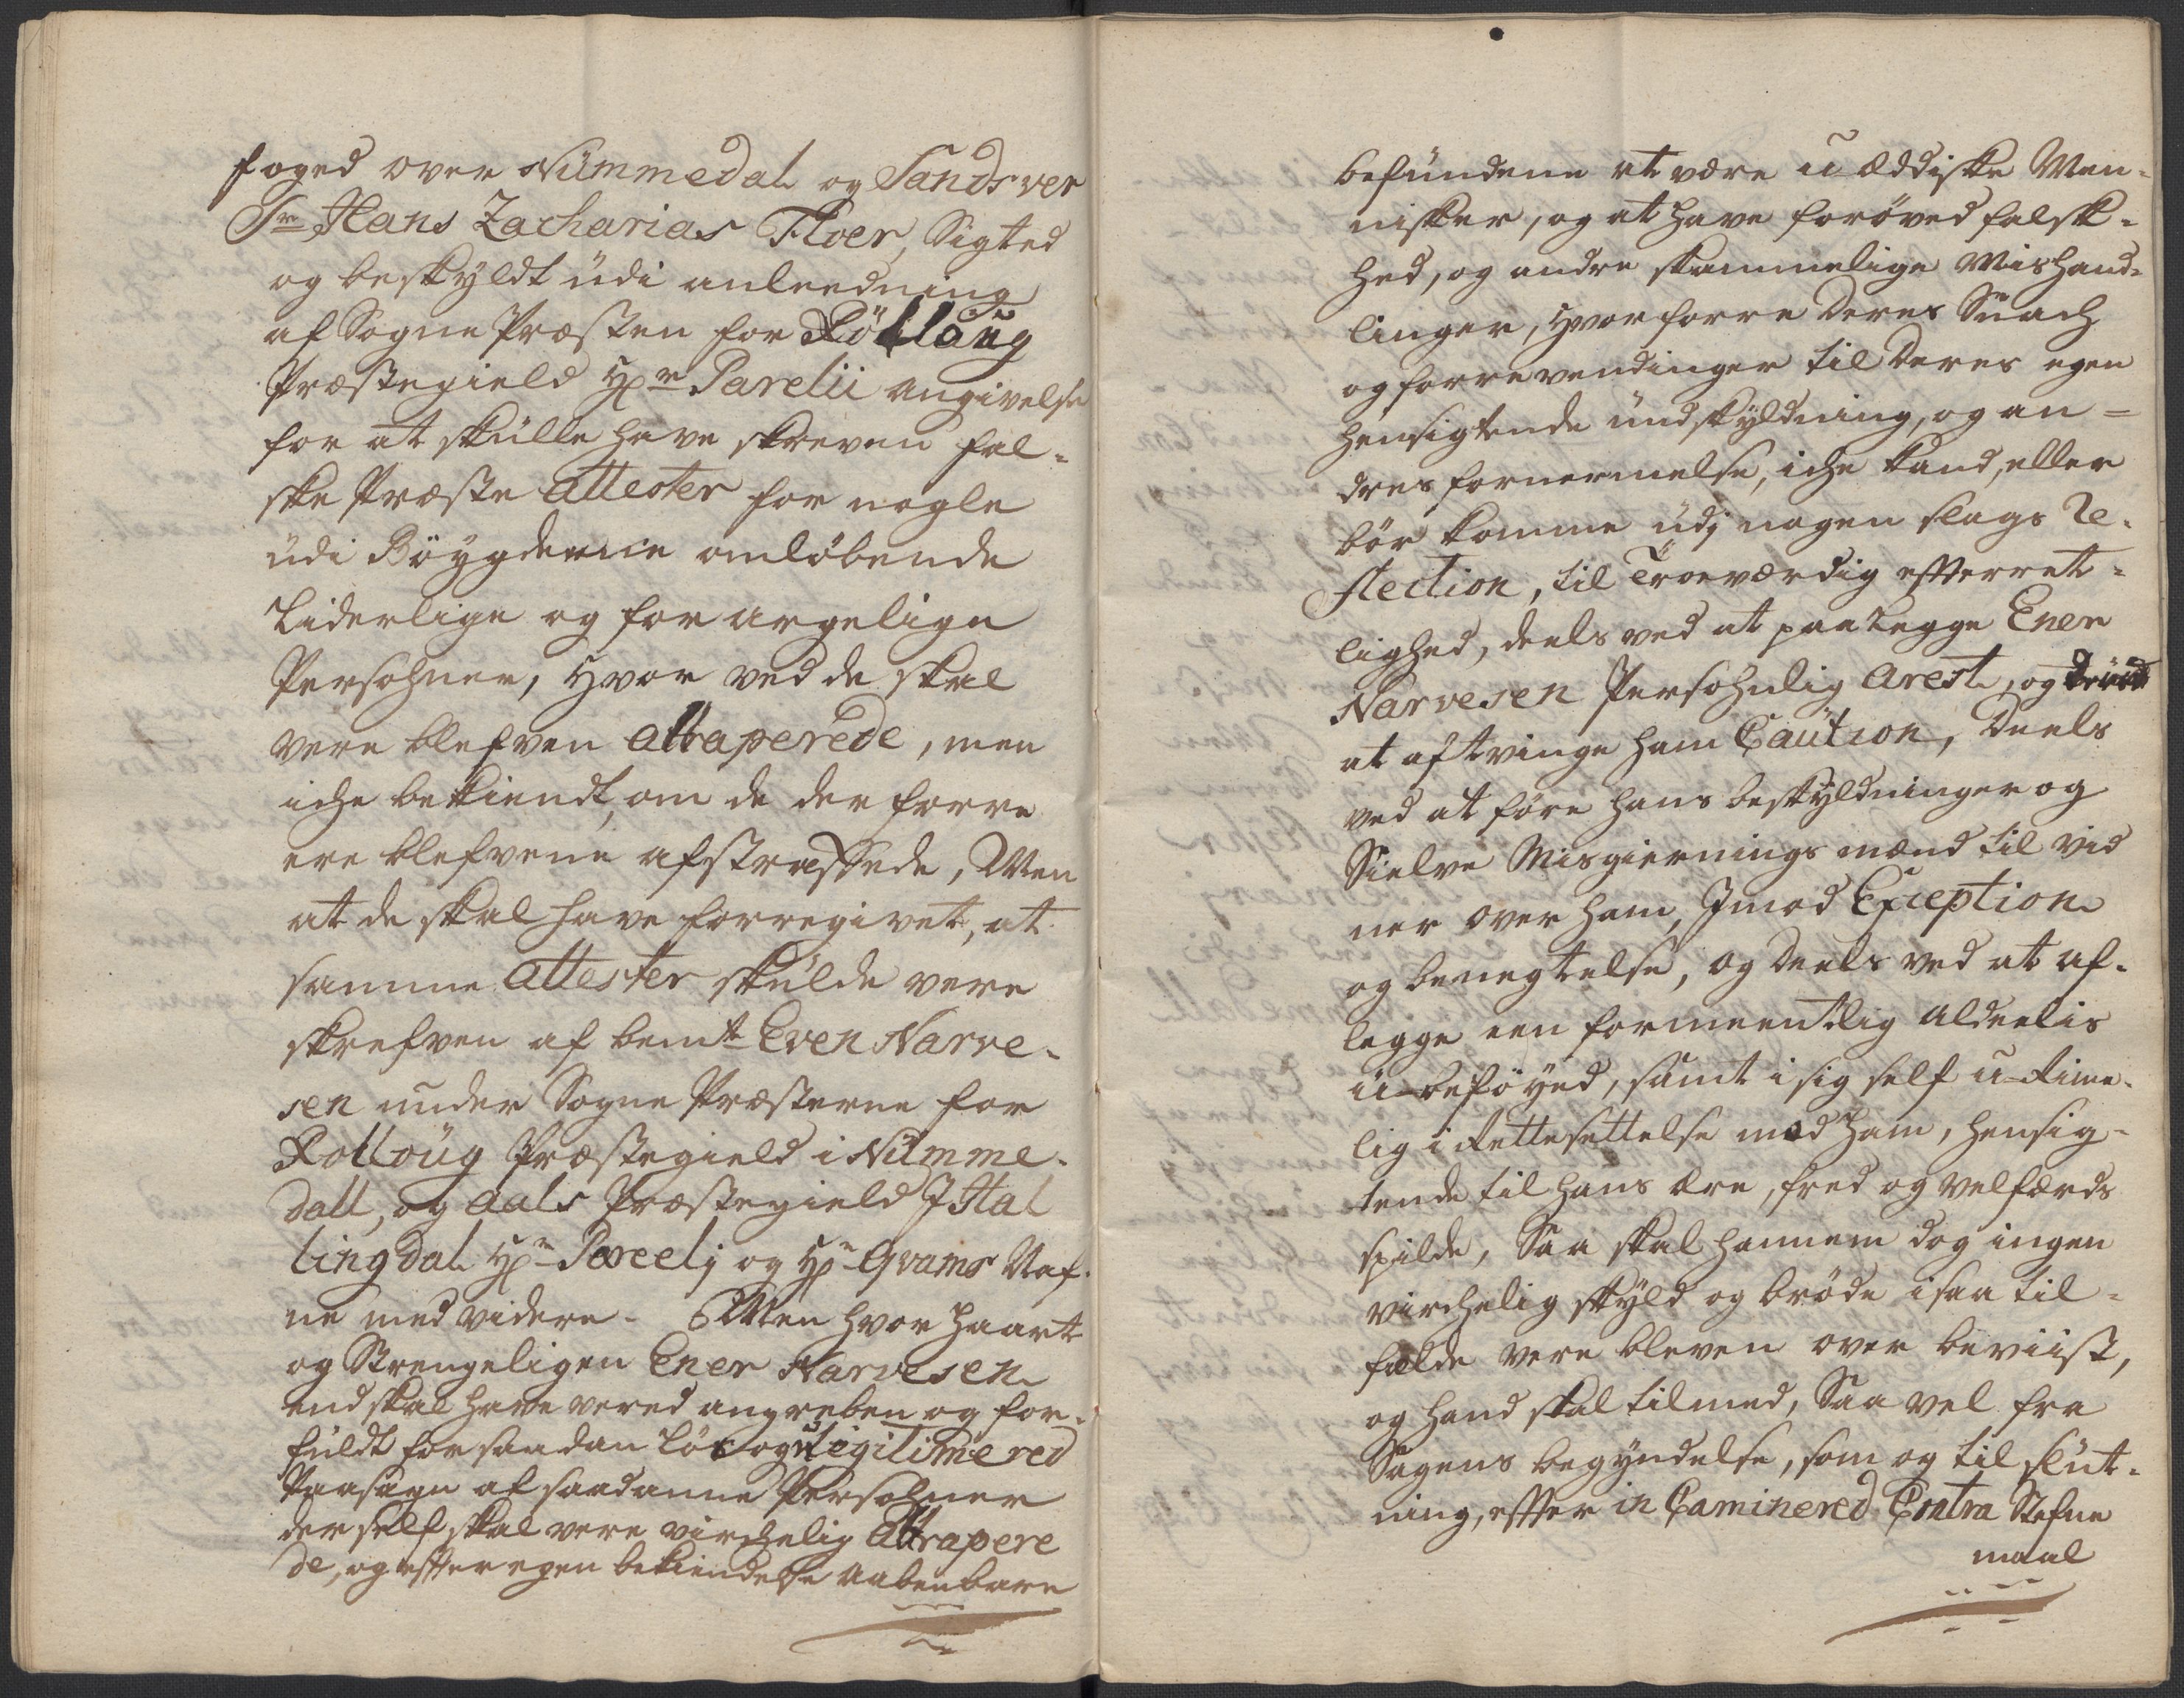 foged over Nümmedal og Sandsver
Sr Hans Zacharias Floer, Sigted
og beskyldt üdi anleedning
af Sogne Præsten for Röllaug
Præstegield Hr Parelii angivelse
for at skülle have skreven fal-
ske Præste attester for nogle
üdi Böygderne omløbende
Liderlige og forargelige
Persohner, hvor ved de skal
vere blefven attraperede, men
iche bekiendt, om de der forre
ere blefvene afstraffede, Men
at de skal have forregivet, at
samme attester skülde vere
skrefven af bemte Even Narve-
sen under Sogne Præsterne for
Rolloüg Præstegield i Nümme-
dall, og Aals Præstegield J Hal
lingdal Hr Pareelj og Hr Qvams Naf-
ne med videre - Men hvor haart
og Strengeligen Ener Narvesen
end skal have vered angreben og for-
füldt for saadan Løs og ulegitimered
Paasagn af saadanne Persohner
der self skal vere virchelig Attrapere
de, og effter egen bekiendelse aabenbare
befündene at være u-æddiske Men-
nisker, og at have forøved falsk-
hed, og andre skammelige Mishand-
linger, hvorforre deres Snach
og forrevendinger til deres egen
hensigtende ündskyldning, og an-
dres fornermelse, iche kand, eller
bör komme üdj nogen slags Re-
flection, til Troeværdig effterret-
lighed, deels ved at paalegge Ener
Narvesen Persohnlig Arest, og
at aftvinge ham Caution, Deels
ved at føre hans beskyldninger og
Sielve Misgiernings mænd til vid
ner over ham, Jmod Exception
og benegtelse, og deels ved at af-
legge een formeentlig aldeelis
u-beföyed, samt i sig self u-Rime-
lig i Rettesettelse mod ham, hensig-
tende til hans Ære, fred og velfærds
spilde, Saa skal hannem dog ingen
virchelig skyld og bröde i saa til-
fælde vere bleven over beviist,
og hand skal tilmed, Saa vel fra
Sagens begyndelse, som og til slut-
ning, effter in Caminered Contra Stefne
maal